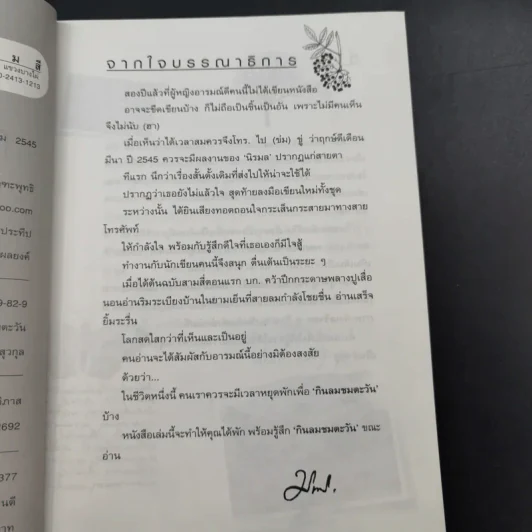 ม สี
แขวงบางไผ่
0-2413-1213
ม 2545
oo.com
9-82-9
2692
377
จากใจบรรณาธิการ
สองปีแล้วที่ผู้หญิงอารมณ์ดีคนนี้ไม่ได้เขียนหนังสือ
อาจจะขีดเขียนบ้าง ก็ไม่ถือเป็นชิ้นเป็นอัน เพราะไม่มีคนเห็น
จึงไม่นับ (ฮา)
เมื่อเห็นว่าได้เวลาสมควรจึงโทร. ไป (ข่ม) ขู่ ว่าฤกษ์ดีเดือน
มีนา ปี 2545 ควรจะมีผลงานของ 'นิรมล' ปรากฏแก่สายตา
ทีแรก นึกว่าเรื่องสั้นดั้งเดิมที่ส่งไปให้น่าจะใช้ได้
ปรากฏว่าเธอยังไม่แล้วใจ สุดท้ายลงมือเขียนใหม่ทั้งชุด
ระหว่างนั้น ได้ยินเสียงทอดถอนใจกระเส็นกระสายมาทางสาย
โทรศัพท์
ให้กำลังใจ พร้อมกับรู้สึกดีใจที่เธอเองก็มีใจสู้
ทำงานกับนักเขียนคนนี้จึงสนุก ตื่นเต้นเป็นระยะ ๆ
เมื่อได้ต้นฉบับสามสี่ตอนแรก บก. คว้าปึกกระดาษพลางปูเสื่อ
นอนอ่านริมระเบียงบ้านในยามเย็นที่สายลมกำลังโชยชื่น อ่านเสร็จ
ยิ้มระรื่น
โลกสดใสกว่าที่เห็นและเป็นอยู่
คนอ่านจะได้สัมผัสกับอารมณ์นี้อย่างมิต้องสงสัย
ด้วยว่า...
ในชีวิตหนึ่งนี้ คนเราควรจะมีเวลาหยุดพักเพื่อ 'กินลมชมตะวัน'
บ้าง
หนังสือเล่มนี้จะทำให้คุณได้พัก พร้อมรู้สึก 'กินลมชมตะวัน' ขณะ
อ่าน